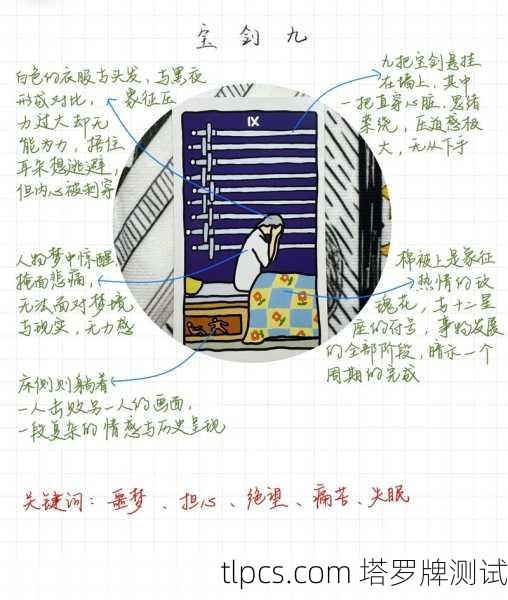 宝剑九
白色的衣服与头发，与黑夜
形成对比，象征压
力过大却无
能为力，捂住
耳朵想逃避，
但内心被刺穿
九把宝剑悬挂
在墙上，其中
一把直穿心脏，思绪
萦绕，压迫感极
大，无从下手
IX
人物梦中惊醒，
掩面悲痛，
无法面对梦境
与现实，无力感
棉被上是象征
热情的玫
瑰花，与十二星
座的符号，事物发展
的全部阶段，暗示一个
周期的完成
床侧则躺着
一人击败另一人的画面，
一段复杂的情感与历史呈现
关键词：噩梦、担心、绝望、痛苦、失眠
tlpcs.com 塔罗牌测试